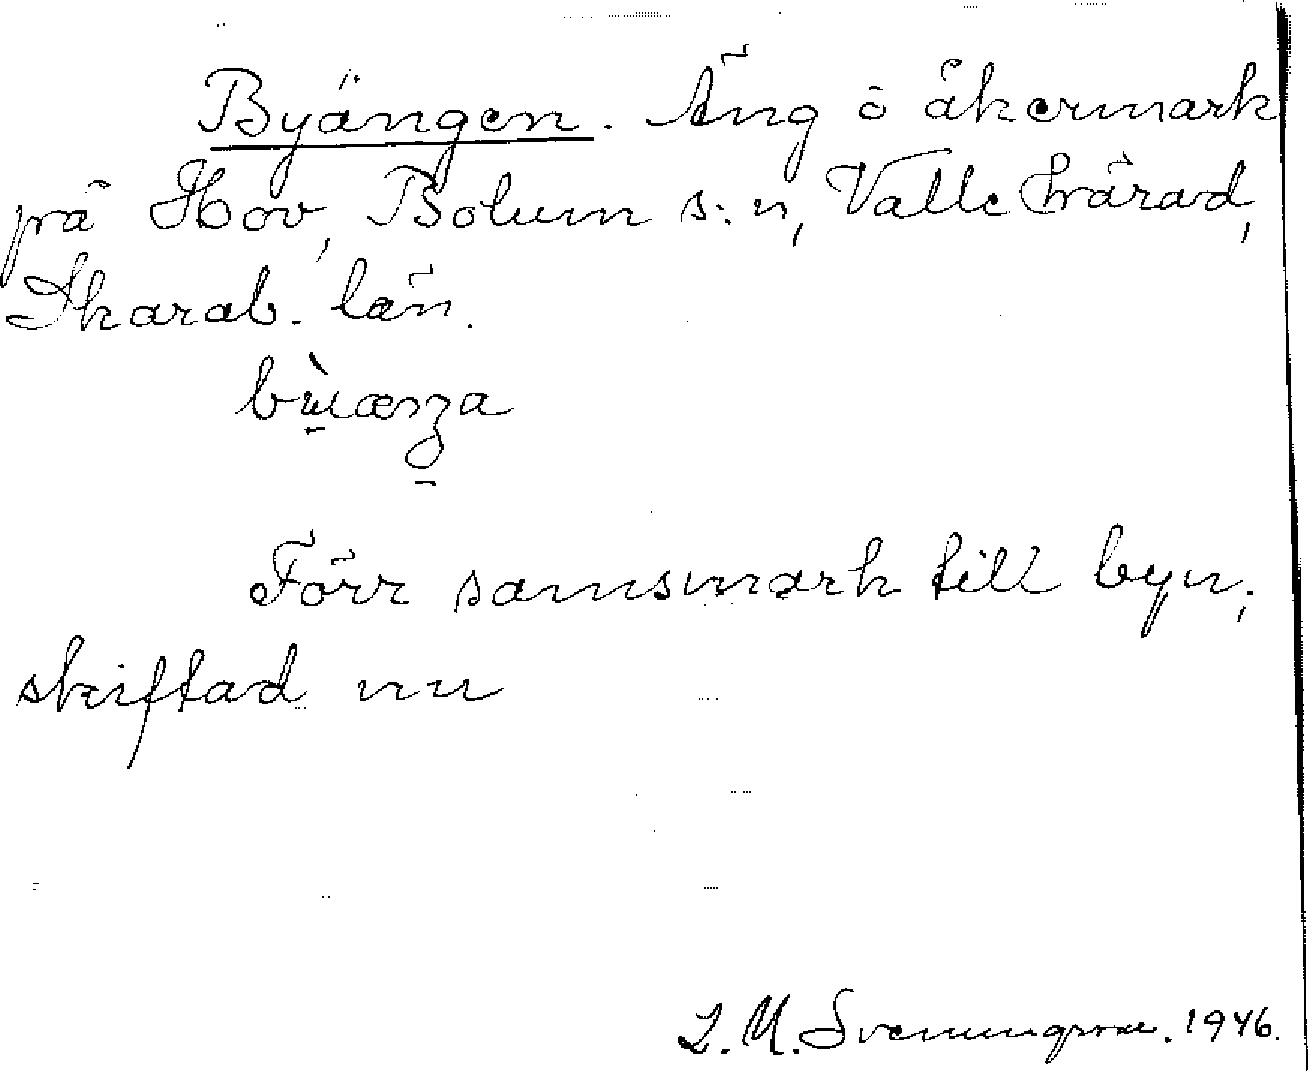 Byängen. Äng o åkermark
på Hov, Bolum s:n, Valle härad,
Skarab. län.
Förr samsmark till byn,
skiftad nu
L. M. Svenungsson. 1946.